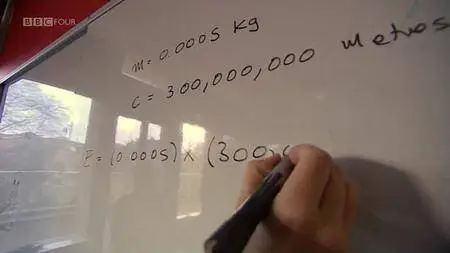 BBC FOUR
m = 0.0005 kg
c = 300,000,000 metres
E = (0.0005) × (300,0